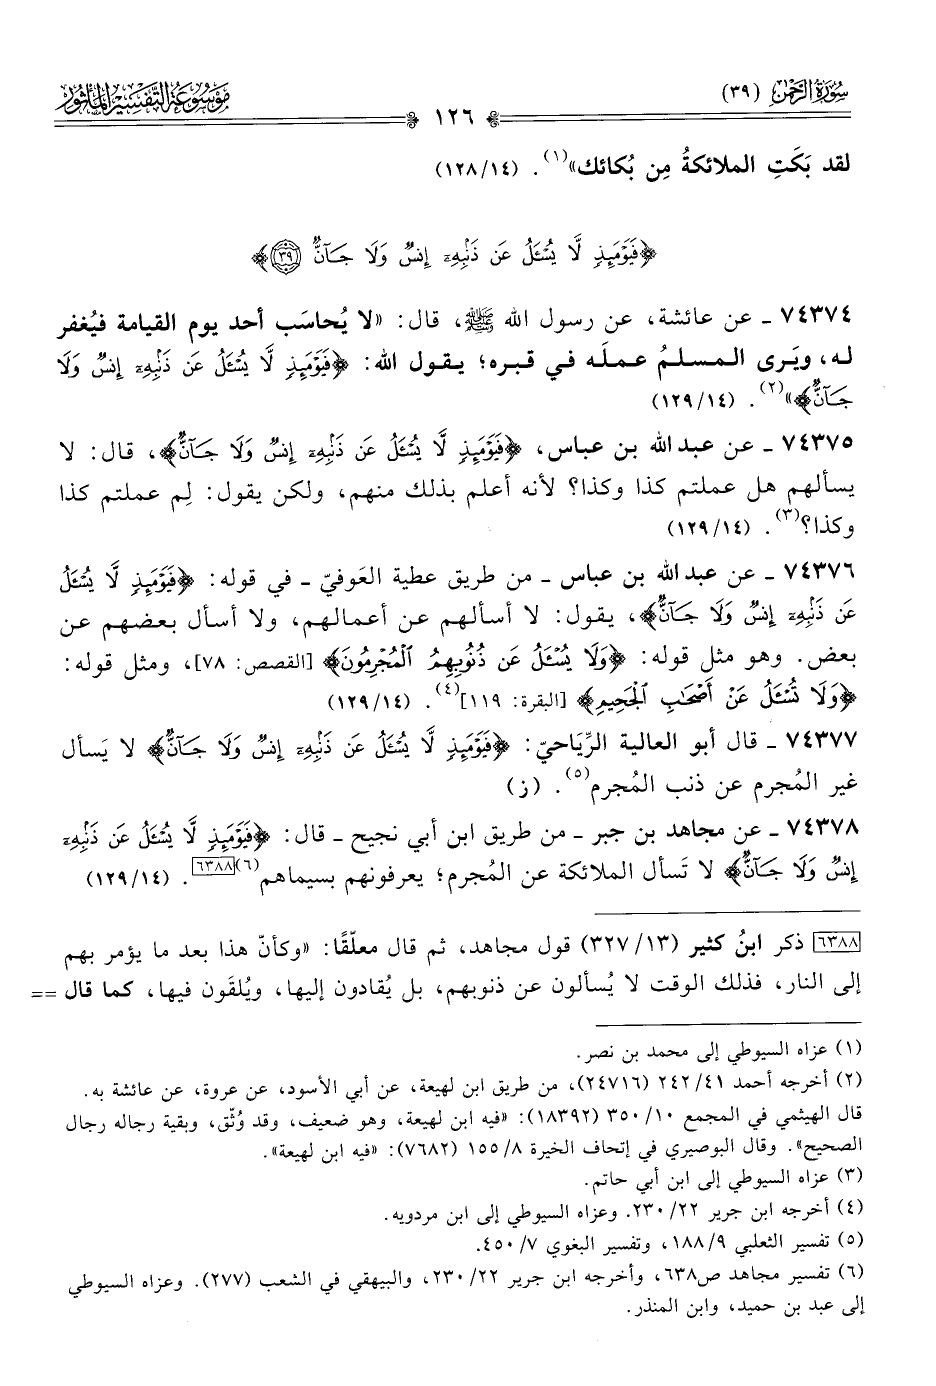 سورة الرحمن (٣٩)
١٢٦
موسوعة التفسير المأثور
لقد بَكَتِ الملائكةُ مِن بُكائك»(١). (١٤/ ١٢٨)
﴿فَيَوْمَئِذٍ لَّا يُسْـَٔلُ عَن ذَنۢبِهِۦٓ إِنسٌ وَلَا جَآنٌّ ٣٩﴾
٧٤٣٧٤ ـ عن عائشة، عن رسول الله ﷺ، قال: «لا يُحاسَب أحد يوم القيامة فيُغفر
له، ويَرى المسلمُ عملَه في قبره؛ يقول الله: ﴿فَيَوْمَئِذٍ لَّا يُسْـَٔلُ عَن ذَنۢبِهِۦٓ إِنسٌ وَلَا
جَآنٌّ﴾»(٢). (١٤/ ١٢٩)
٧٤٣٧٥ ـ عن عبد الله بن عباس، ﴿فَيَوْمَئِذٍ لَّا يُسْـَٔلُ عَن ذَنۢبِهِۦٓ إِنسٌ وَلَا جَآنٌّ﴾، قال: لا
يسألهم هل عملتم كذا وكذا؟ لأنه أعلم بذلك منهم، ولكن يقول: لِم عملتم كذا
وكذا؟(٣). (١٤/ ١٢٩)
٧٤٣٧٦ ـ عن عبد الله بن عباس ـ من طريق عطية العَوفيّ ـ في قوله: ﴿فَيَوْمَئِذٍ لَّا يُسْـَٔلُ
عَن ذَنۢبِهِۦٓ إِنسٌ وَلَا جَآنٌّ﴾، يقول: لا أسألهم عن أعمالهم، ولا أسأل بعضهم عن
بعض. وهو مثل قوله: ﴿وَلَا يُسْـَٔلُ عَن ذُنُوبِهِمُ ٱلْمُجْرِمُونَ﴾ [القصص: ٧٨]، ومثل قوله:
﴿وَلَا تُسْـَٔلُ عَنْ أَصْحَٰبِ ٱلْجَحِيمِ﴾ [البقرة: ١١٩](٤). (١٤/ ١٢٩)
٧٤٣٧٧ ـ قال أبو العالية الرِّياحيّ: ﴿فَيَوْمَئِذٍ لَّا يُسْـَٔلُ عَن ذَنۢبِهِۦٓ إِنسٌ وَلَا جَآنٌّ﴾ لا يَسأل
غير المُجرم عن ذنب المُجرم(٥). (ز)
٧٤٣٧٨ ـ عن مجاهد بن جبر ـ من طريق ابن أبي نجيح ـ قال: ﴿فَيَوْمَئِذٍ لَّا يُسْـَٔلُ عَن ذَنۢبِهِۦٓ
إِنسٌ وَلَا جَآنٌّ﴾ لا تَسأل الملائكة عن المُجرم؛ يعرفونهم بسيماهم(٦)[٦٣٨٨]. (١٤/ ١٢٩)
[٦٣٨٨] ذكر ابنُ كثير (١٣/ ٣٢٧) قول مجاهد، ثم قال معلّقًا: «وكأنّ هذا بعد ما يؤمر بهم
إلى النار، فذلك الوقت لا يُسألون عن ذنوبهم، بل يُقادون إليها، ويُلقَون فيها، كما قال ==
(١) عزاه السيوطي إلى محمد بن نصر.
(٢) أخرجه أحمد ٤١/ ٢٤٢ (٢٤٧١٦)، من طريق ابن لهيعة، عن أبي الأسود، عن عروة، عن عائشة به.
قال الهيثمي في المجمع ١٠/ ٣٥٠ (١٨٣٩٢): «فيه ابن لهيعة، وهو ضعيف، وقد وُثّق، وبقية رجاله رجال
الصحيح». وقال البوصيري في إتحاف الخيرة ٨/ ١٥٥ (٧٦٨٢): «فيه ابن لهيعة».
(٣) عزاه السيوطي إلى ابن أبي حاتم.
(٤) أخرجه ابن جرير ٢٢/ ٢٣٠. وعزاه السيوطي إلى ابن مردويه.
(٥) تفسير الثعلبي ٩/ ١٨٨، وتفسير البغوي ٧/ ٤٥٠.
(٦) تفسير مجاهد ص٦٣٨، وأخرجه ابن جرير ٢٢/ ٢٣٠، والبيهقي في الشعب (٢٧٧). وعزاه السيوطي
إلى عبد بن حميد، وابن المنذر.